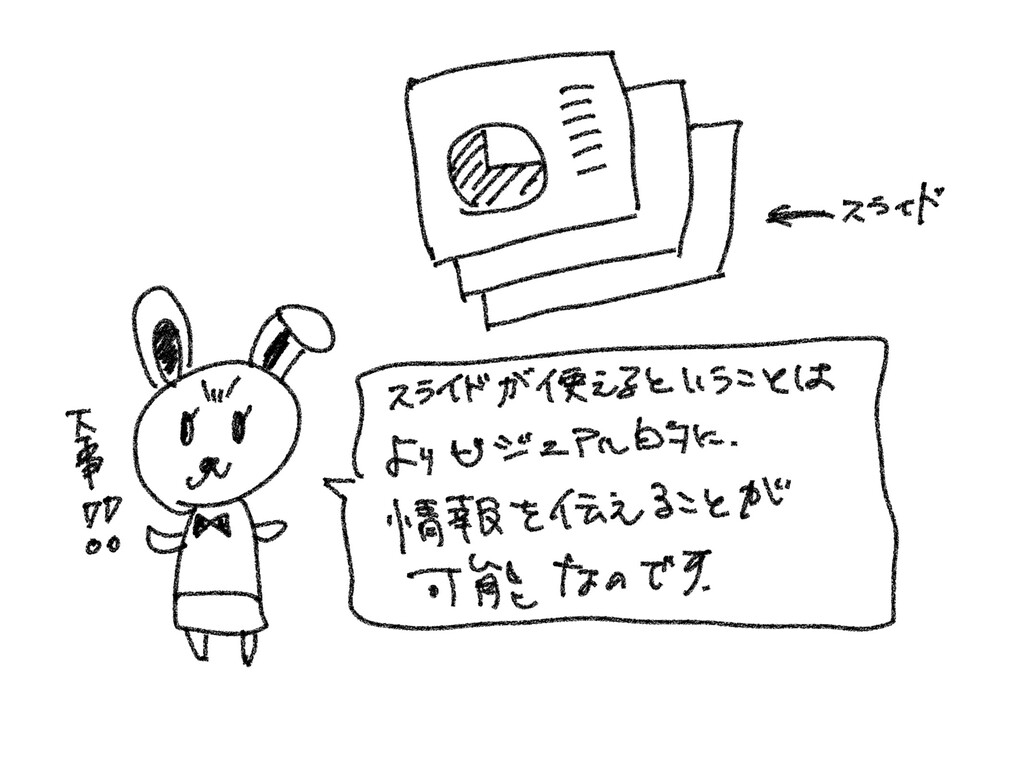 スライド
スライドが使えるということは
よりビジュアル的に.
情報を伝えることが
可能なのです.
大事!!